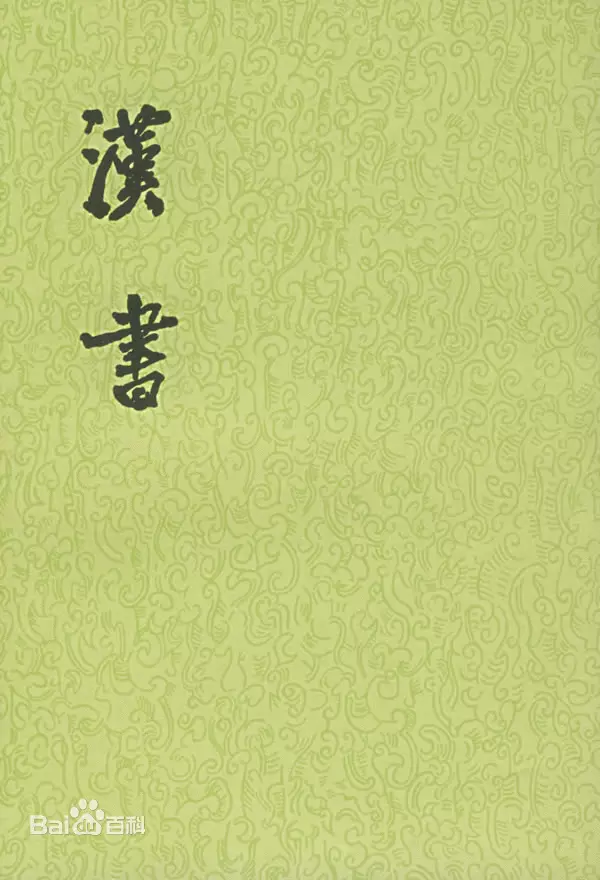 漢書
Bai百科